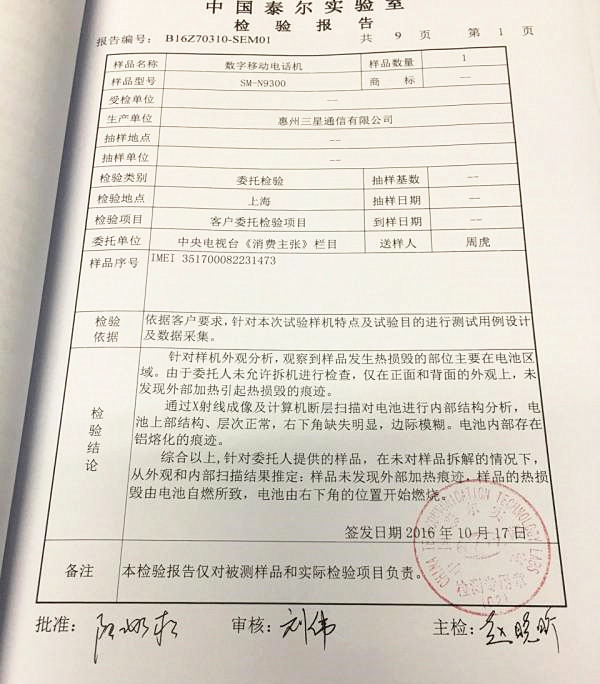 中国泰尔实验室
检验报告
报告编号: B16Z70310-SEM01 共 9 页 第 1 页
样品名称 数字移动电话机 样品数量 1
样品型号 SM-N9300 商 标 --
受检单位 --
生产单位 惠州三星通信有限公司
抽样地点 --
抽样单位 --
检验类别 委托检验 抽样基数 --
检验地点 上海 抽样日期 --
检验项目 客户委托检验项目 到样日期 --
委托单位 中央电视台《消费主张》栏目 送样人 周虎
样品序号 IMEI 351700082231473
检验依据 依据客户要求,针对本次试验样机特点及试验目的进行测试用例设计
及数据采集。
检验结论
针对样机外观分析,观察到样品发生热损毁的部位主要在电池区
域。由于委托人未允许拆机进行检查,仅在正面和背面的外观上,未
发现外部加热引起热损毁的痕迹。
通过X射线成像及计算机断层扫描对电池进行内部结构分析,电
池上部结构、层次正常,右下角缺失明显,边际模糊。电池内部存在
铝熔化的痕迹。
综合以上,针对委托人提供的样品,在未对样品拆解的情况下,
从外观和内部扫描结果推定:样品未发现外部加热痕迹,样品的热损
毁由电池自燃所致,电池由右下角的位置开始燃烧。
签发日期 2016 年 10 月 17 日
备注 本检验报告仅对被测样品和实际检验项目负责。
批准: 审核: 刘伟 主检: 赵晓昕